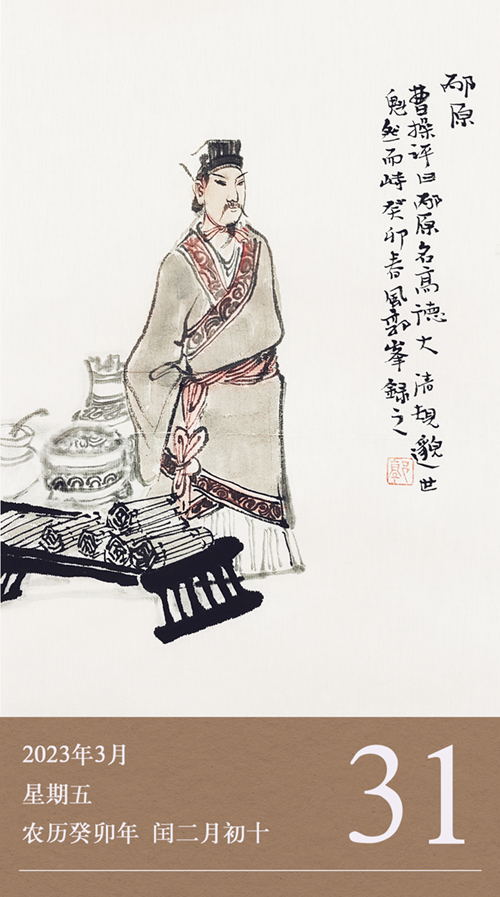 邴原
曹操評曰邴原名高德大清規邈世
魁然而峙癸卯春風郭峯録之
2023年3月
星期五
农历癸卯年 闰二月初十
31